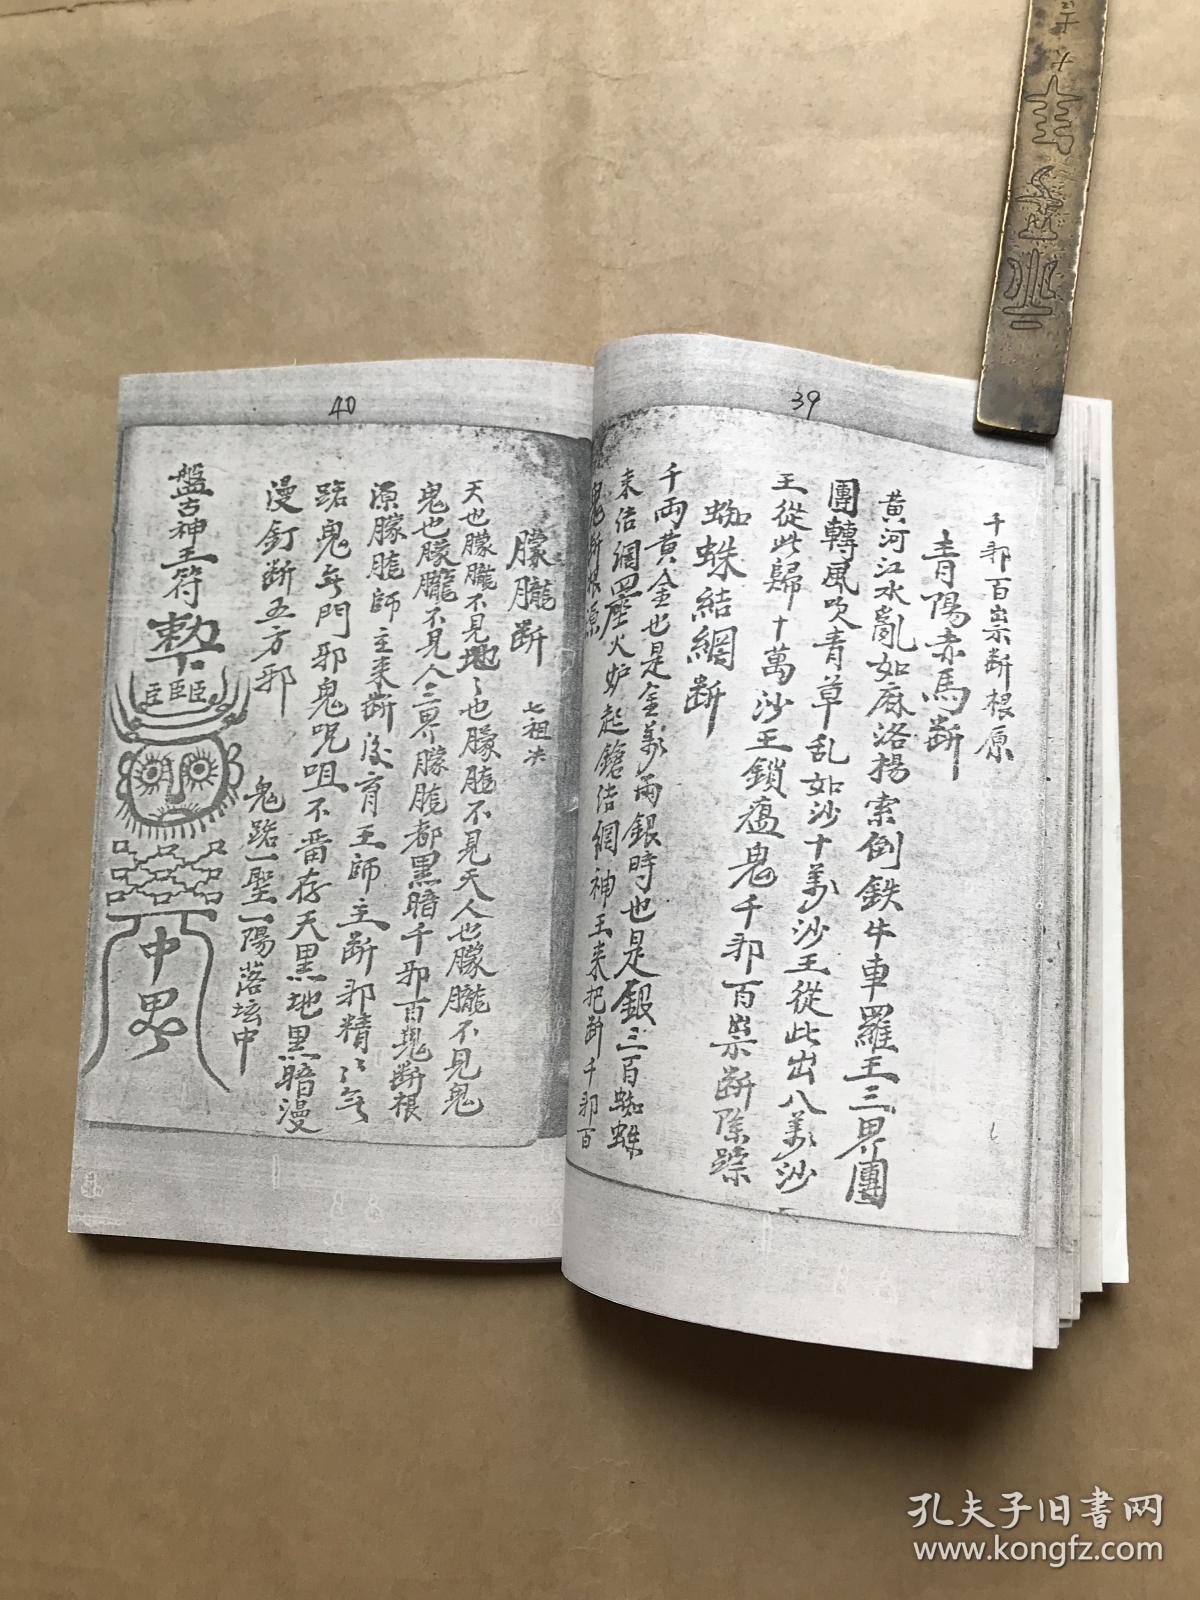 39
千邪百祟断根原
青陽赤馬断
黄河江水亂如麻洛揚索倒鉄牛車羅王三界團
團轉風吹青草乱如沙十萬沙王從此出八萬沙
王從此歸十萬沙王鎖瘟鬼千邪百祟断除踪
蜘蛛結網断
千両黄金也是金萬両銀時也是銀三百蜘蛛
来结網四座火炉起鎗结網神王来把断千邪百
鬼断根源
40
朦朧断 七祖决
天也朦朧不見地〻也朦朧不見天人也朦朧不見鬼
鬼也朦朧不見人三界朦朧都黑暗千邪百鬼断根
源朦朧師主来断後育王師主断邪精〻无
踏鬼无門邪鬼呪咀不留存天黑地黑暗漫
漫釘断五方邪 鬼踏一聖一陽落坛中
盤古神王符
勅下
臣臣臣
中
孔夫子旧书网
www.kongfz.com